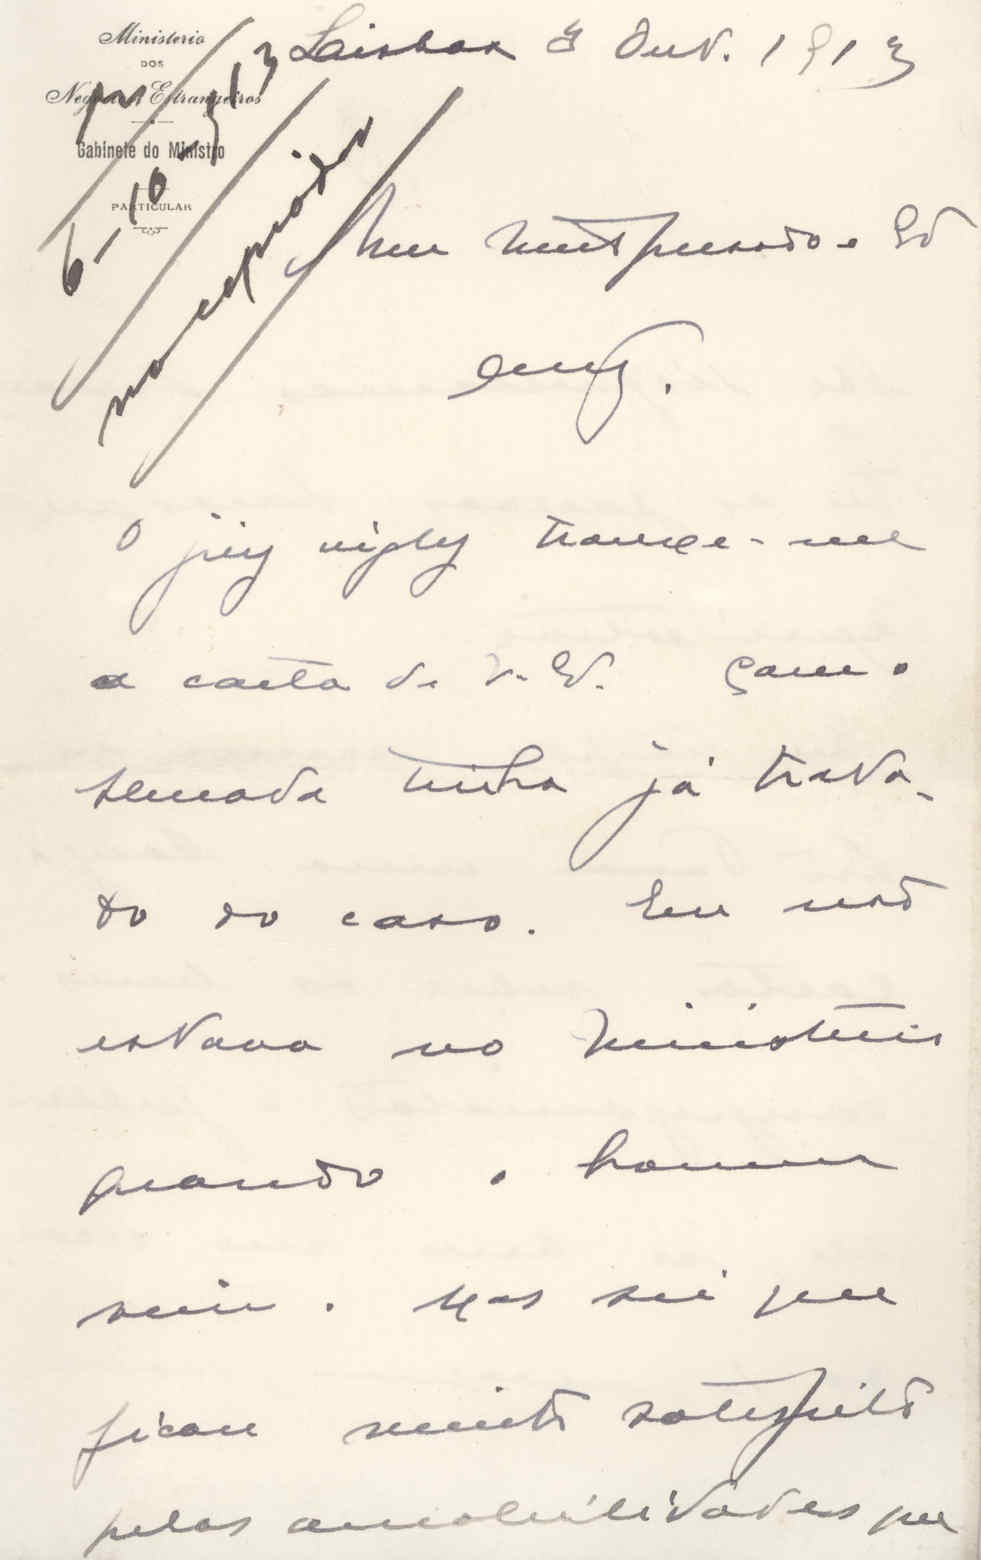 Ministerio
DOS
Negocios Estrangeiros
Gabinete do Ministro
PARTICULAR
Lisboa 3 Out. 1913
6-10-913
Meu muito presado e
amº.
O juiz trouxe-me
a carta de V. Ex.
semada tinha já trata-
do do caso. Eu não
estava no Ministerio
quando o homem
veiu. Mas sei que
ficou muito satisfeito
pelas amabilidades que